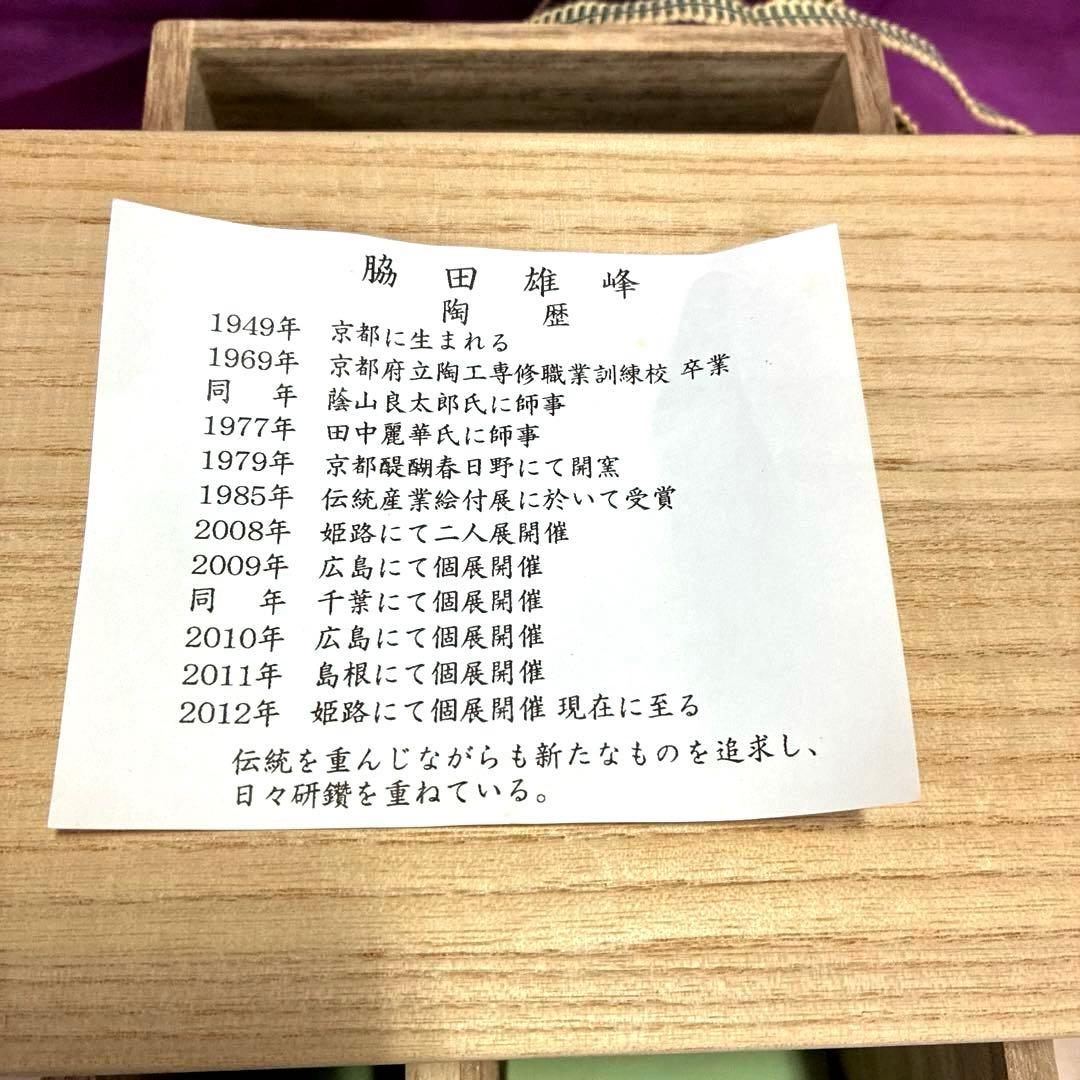 脇田雄峰
陶歴
1949年 京都に生まれる
1969年 京都府立陶工専修職業訓練校 卒業
同年 蔭山良太郎氏に師事
1977年 田中麗華氏に師事
1979年 京都醍醐春日野にて開窯
1985年 伝統産業絵付展に於いて受賞
2008年 姫路にて二人展開催
2009年 広島にて個展開催
同年 千葉にて個展開催
2010年 広島にて個展開催
2011年 島根にて個展開催
2012年 姫路にて個展開催 現在に至る
伝統を重んじながらも新たなものを追求し、
日々研鑽を重ねている。